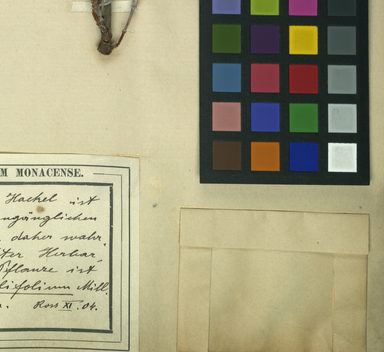 M MONACENSE.
Hackel ist
ungänglichen
daher wahr
ter Herbar,
Pflanze ist
lifolium Mill.
Ross XI. 04.